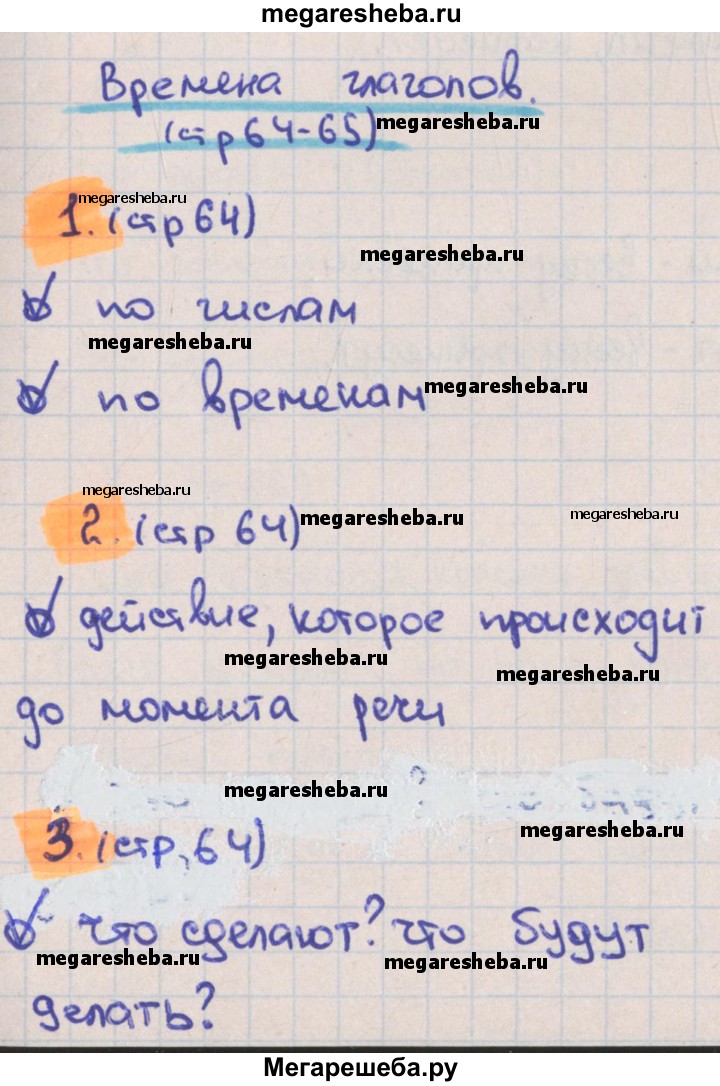 megaresheba.ru
Времена глаголов.
(стр 64-65) megaresheba.ru
megaresheba.ru
1. (стр 64)
megaresheba.ru
по числам
megaresheba.ru
по временам megaresheba.ru
megaresheba.ru
2. (стр 64) megaresheba.ru megaresheba.ru
действие, которое происходит
megaresheba.ru megaresheba.ru
до момента речи
megaresheba.ru
megaresheba.ru
3. (стр. 64)
что сделают? что будут
megaresheba.ru megaresheba.ru
делать?
Мегарешеба.ру